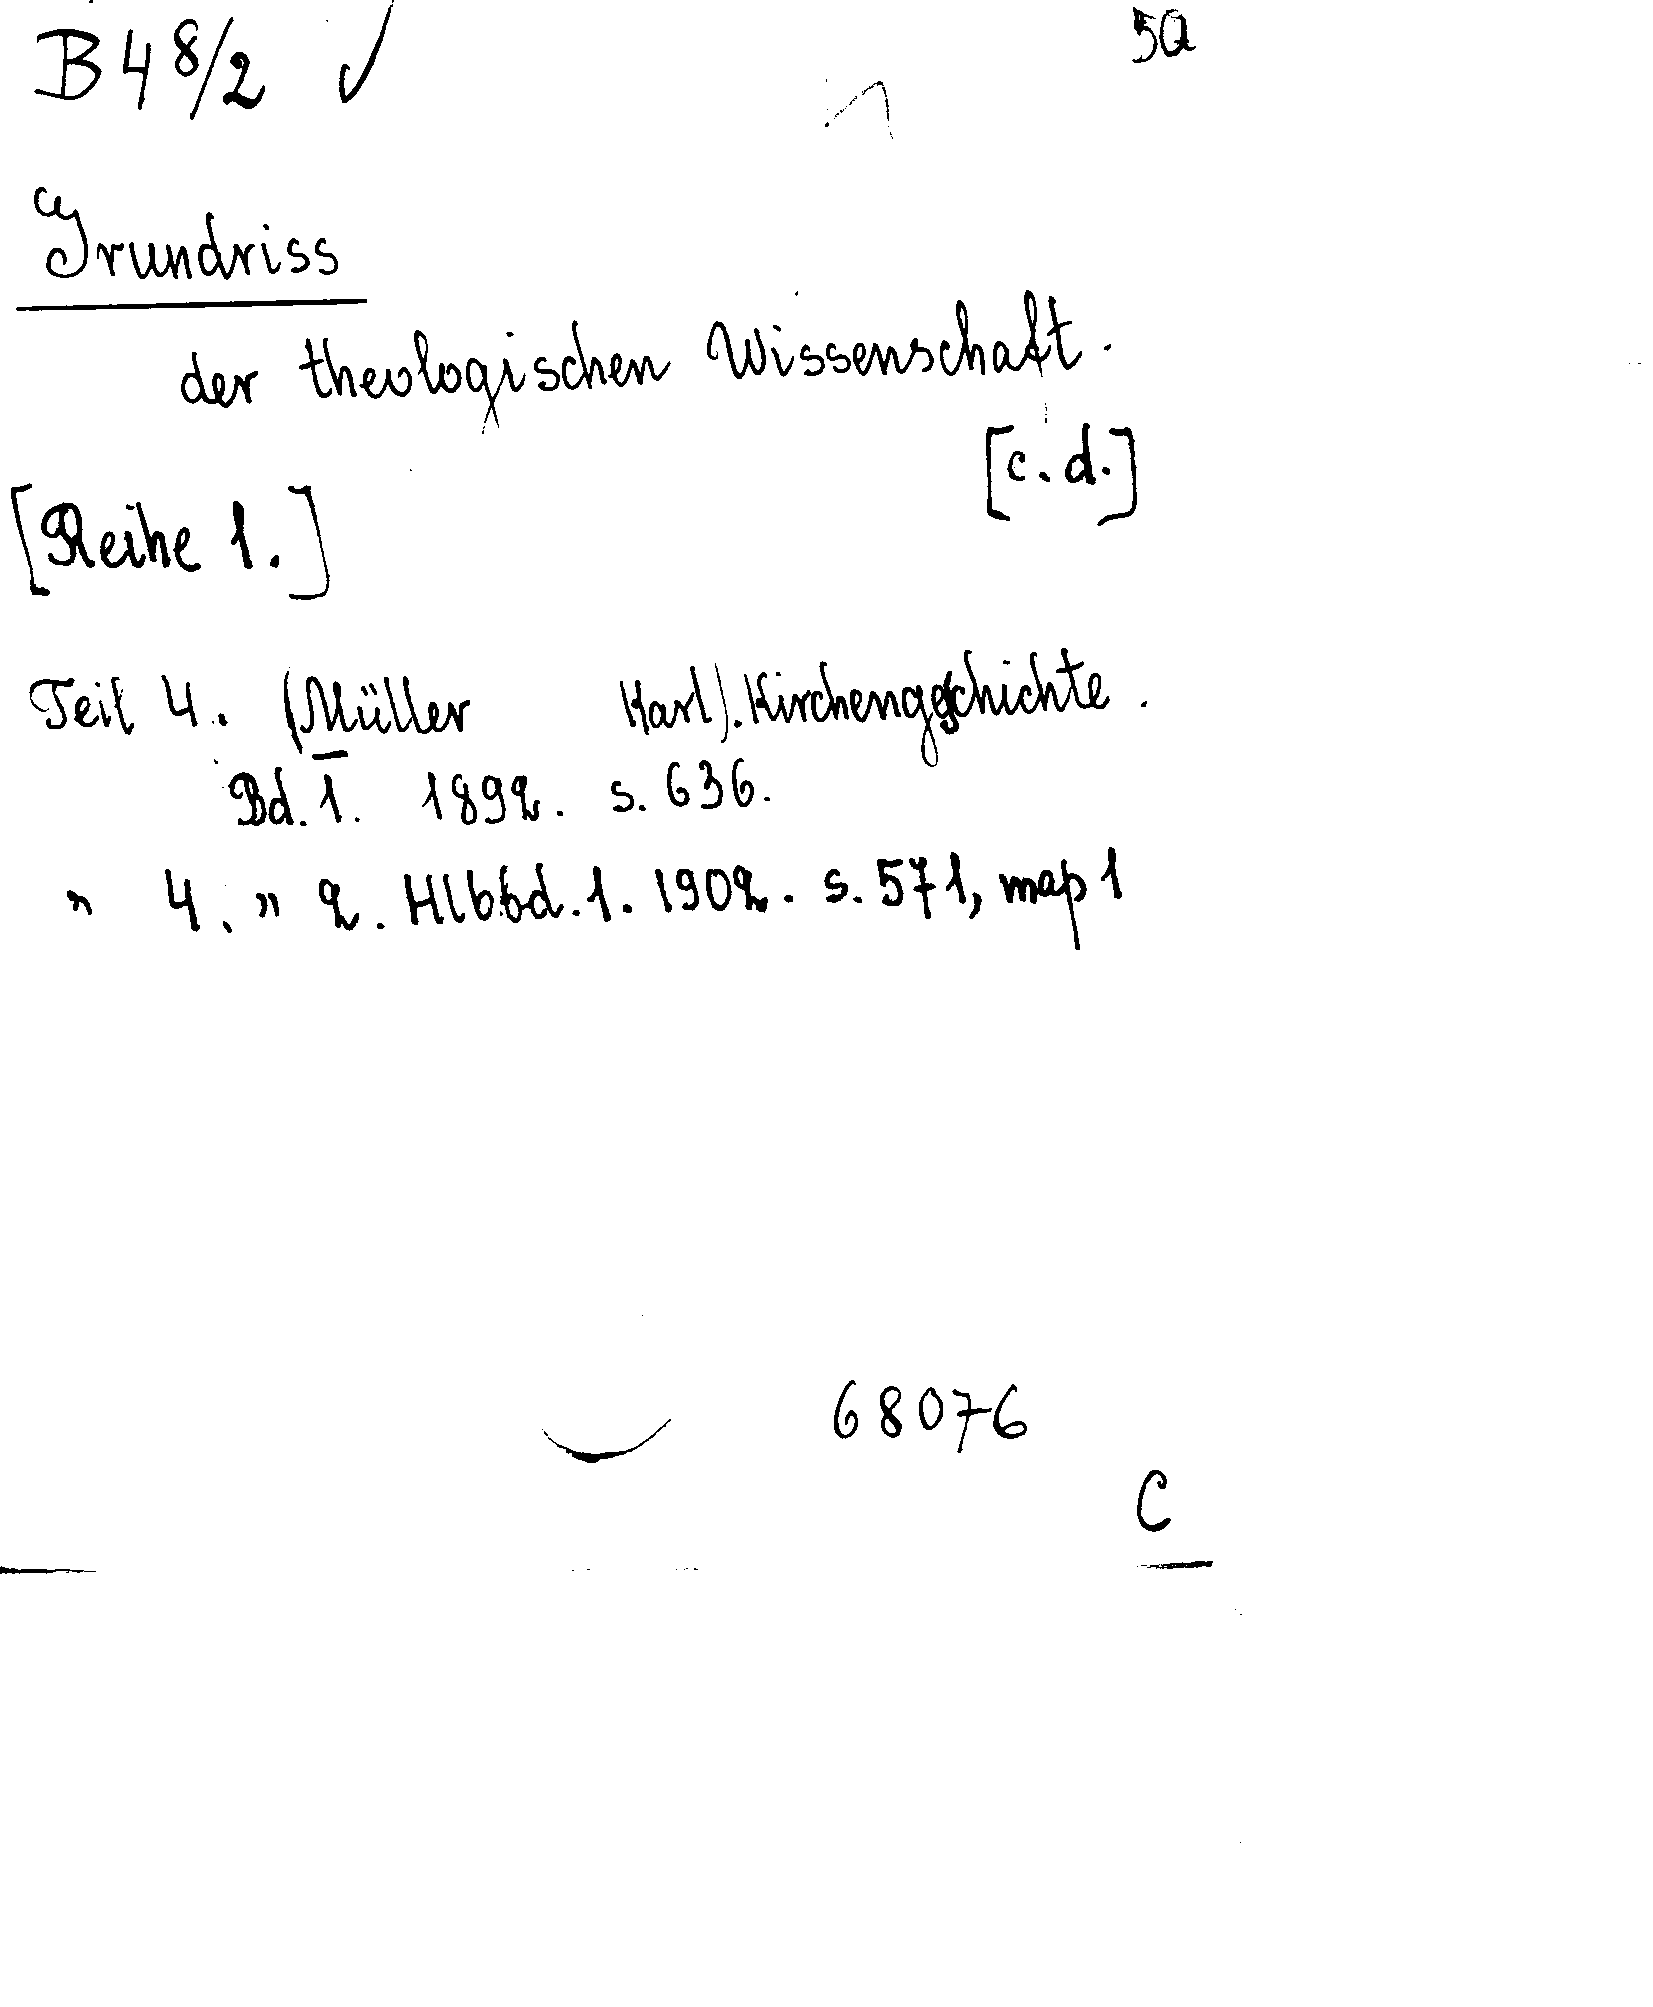 B 4 8/2 ✓ 5a
Grundriss
der theologischen Wissenschaft.
[c. d.]
[Reihe 1.]
Teil 4. (Müller Karl). Kirchengeschichte.
Bd. 1. 1892. s. 636.
" 4. " 2. Hlbbd. 1. 1902. s. 571, map 1
68076
C